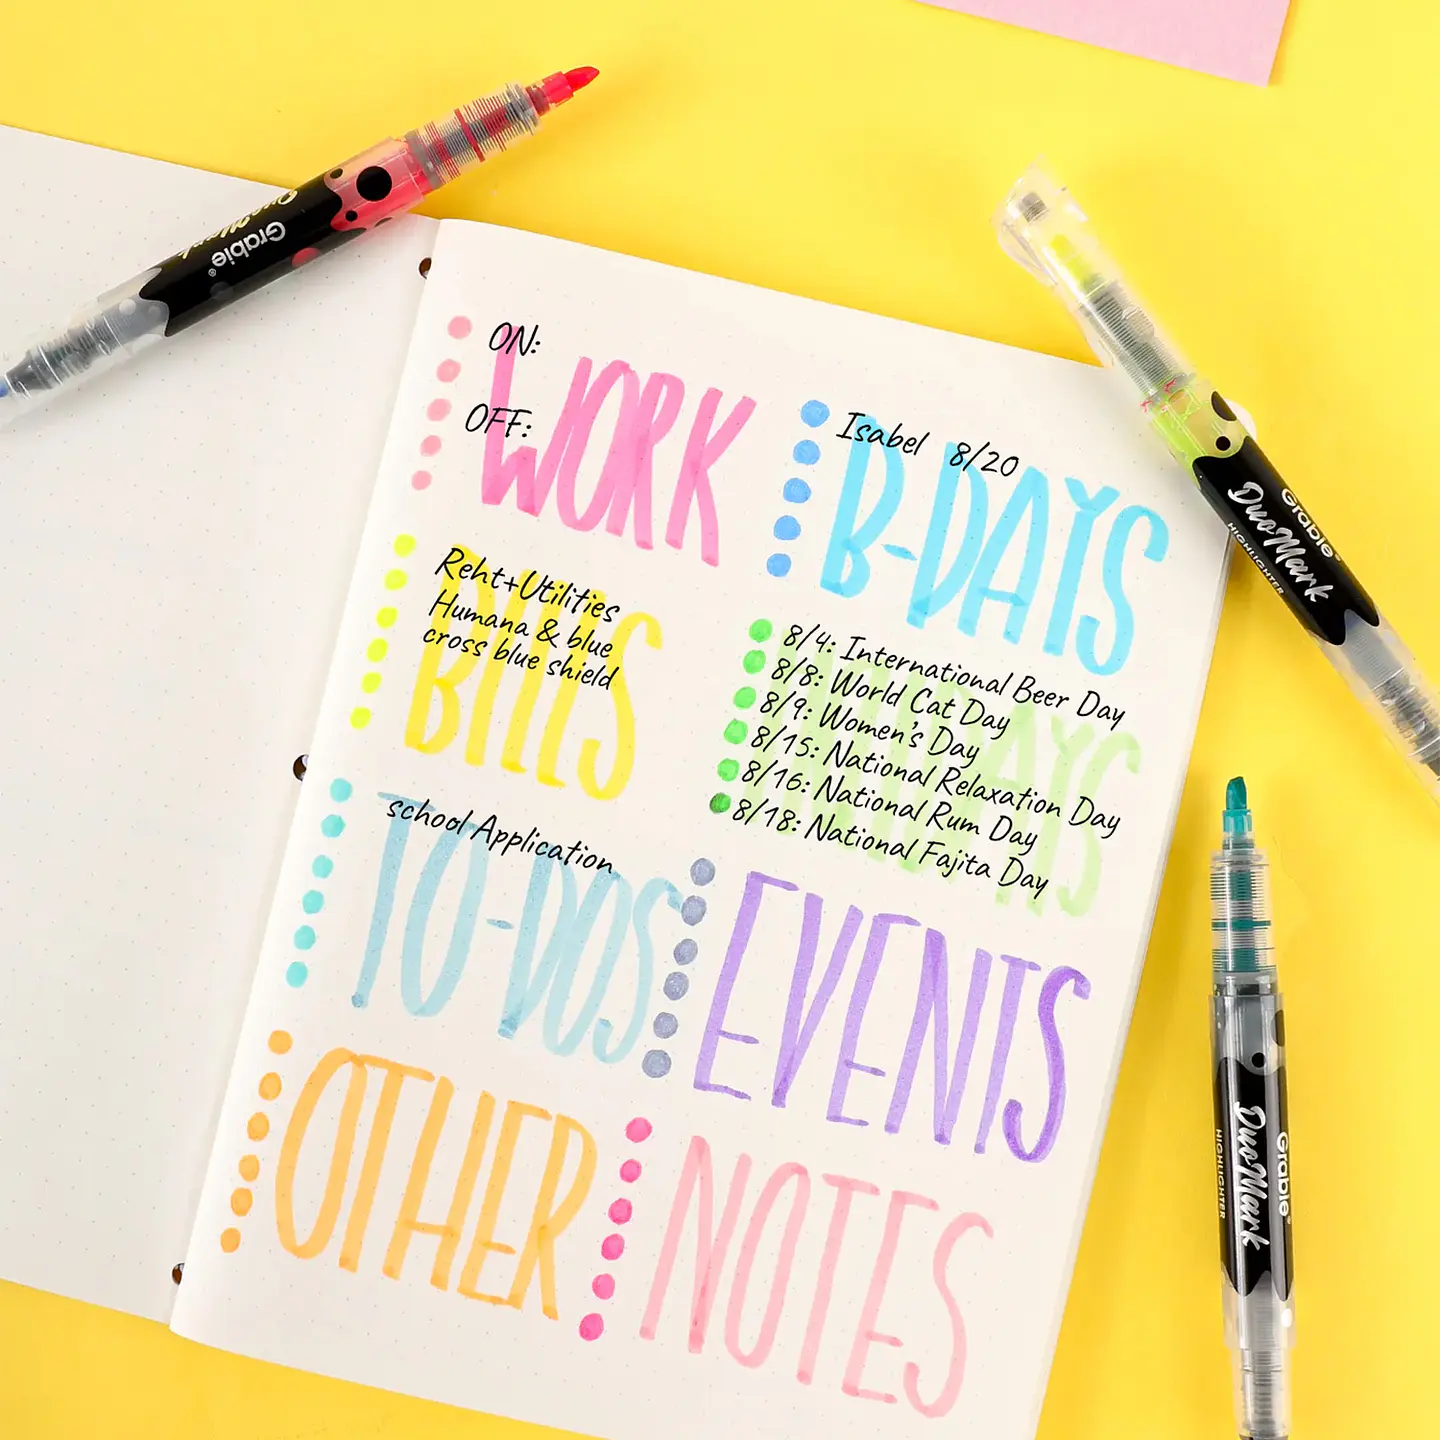 Grabie®
DuoMark
ON:
WORK
OFF:
Isabel 8/20
B-DAYS
Reht+Utilities
Humana & blue
cross blue shield
BILLS
8/4: International Beer Day
8/8: World Cat Day
8/9: Women's Day
8/15: National Relaxation Day
8/16: National Rum Day
8/18: National Fajita Day
school Application
TO-DOS
EVENTS
OTHER
NOTES
Grabie®
DuoMark
HIGHLIGHTER
Grabie®
DuoMark
HIGHLIGHTER